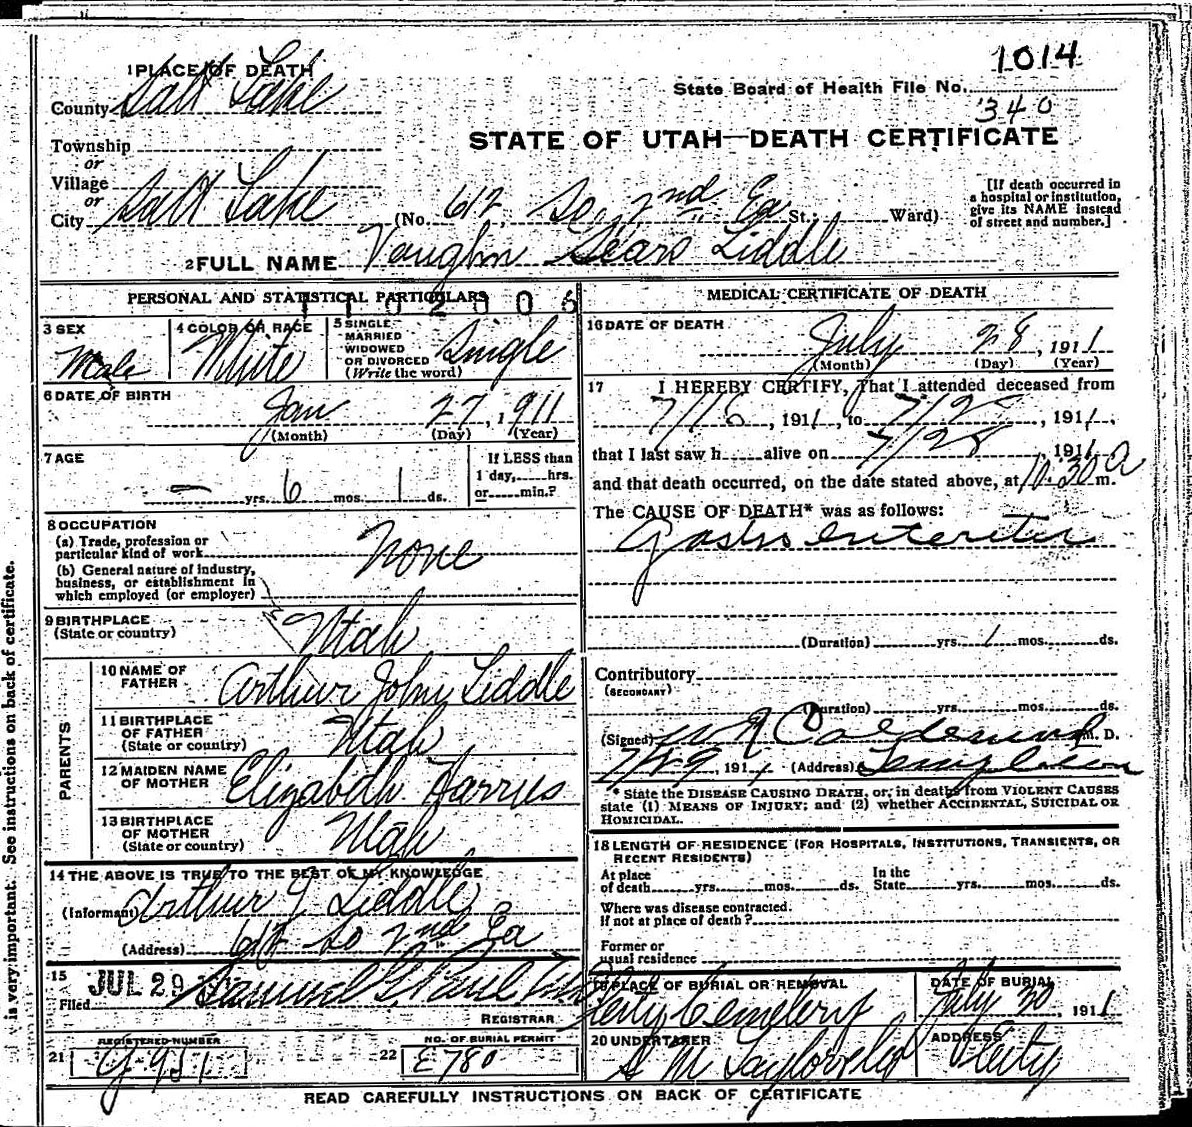 1014
1 PLACE OF DEATH
County Salt Lake
State Board of Health File No.
340
STATE OF UTAH—DEATH CERTIFICATE
Township
or
Village
or
City Salt Lake (No. 612, So. 2nd Ea St.; Ward)
[If death occurred in
a hospital or institution,
give its NAME instead
of street and number.]
2 FULL NAME Vaughn Sears Liddle
PERSONAL AND STATISTICAL PARTICULARS
1102006
3 SEX
Male
4 COLOR OR RACE
White
5 SINGLE,
MARRIED
WIDOWED
OR DIVORCED
(Write the word)
Single
6 DATE OF BIRTH
Jan 27, 1911
(Month) (Day) (Year)
7 AGE
— yrs. 6 mos. 1 ds.
If LESS than
1 day, hrs.
or min.?
8 OCCUPATION
(a) Trade, profession or
particular kind of work
None
(b) General nature of industry,
business, or establishment in
which employed (or employer)
9 BIRTHPLACE
(State or country)
Utah
PARENTS
10 NAME OF
FATHER
Arthur John Liddle
11 BIRTHPLACE
OF FATHER
(State or country)
Utah
12 MAIDEN NAME
OF MOTHER
Elizabeth Harries
13 BIRTHPLACE
OF MOTHER
(State or country)
Utah
14 THE ABOVE IS TRUE TO THE BEST OF MY KNOWLEDGE
(Informant) Arthur J Liddle
(Address) 612 So 2nd Ea
15
Filed JUL 29 Samuel G. Paul
REGISTRAR
21 REGISTERED NUMBER
G 951
22 NO. OF BURIAL PERMIT
E 780
MEDICAL CERTIFICATE OF DEATH
16 DATE OF DEATH
July 28, 1911
(Month) (Day) (Year)
17 I HEREBY CERTIFY, That I attended deceased from
7/16, 1911, to 7/28, 1911,
that I last saw h alive on 7/28 1911
and that death occurred, on the date stated above, at 10:30 a m.
The CAUSE OF DEATH* was as follows:
Gastro enteritis
(Duration) yrs. 1 mos. ds.
Contributory
(SECONDARY)
(Duration) yrs. mos. ds.
(Signed) Calderwood M. D.
7/29, 1911 (Address) Templeton
* State the DISEASE CAUSING DEATH, or, in deaths from VIOLENT CAUSES
state (1) MEANS OF INJURY; and (2) whether ACCIDENTAL, SUICIDAL OR
HOMICIDAL.
18 LENGTH OF RESIDENCE (FOR HOSPITALS, INSTITUTIONS, TRANSIENTS, OR
RECENT RESIDENTS)
At place
of death yrs. mos. ds.
In the
State yrs. mos. ds.
Where was disease contracted.
If not at place of death?
Former or
usual residence
19 PLACE OF BURIAL OR REMOVAL
City Cemetery
DATE OF BURIAL
July 30, 1911
20 UNDERTAKER
S M Taylor
ADDRESS
City
READ CAREFULLY INSTRUCTIONS ON BACK OF CERTIFICATE
is very important. See instructions on back of certificate.